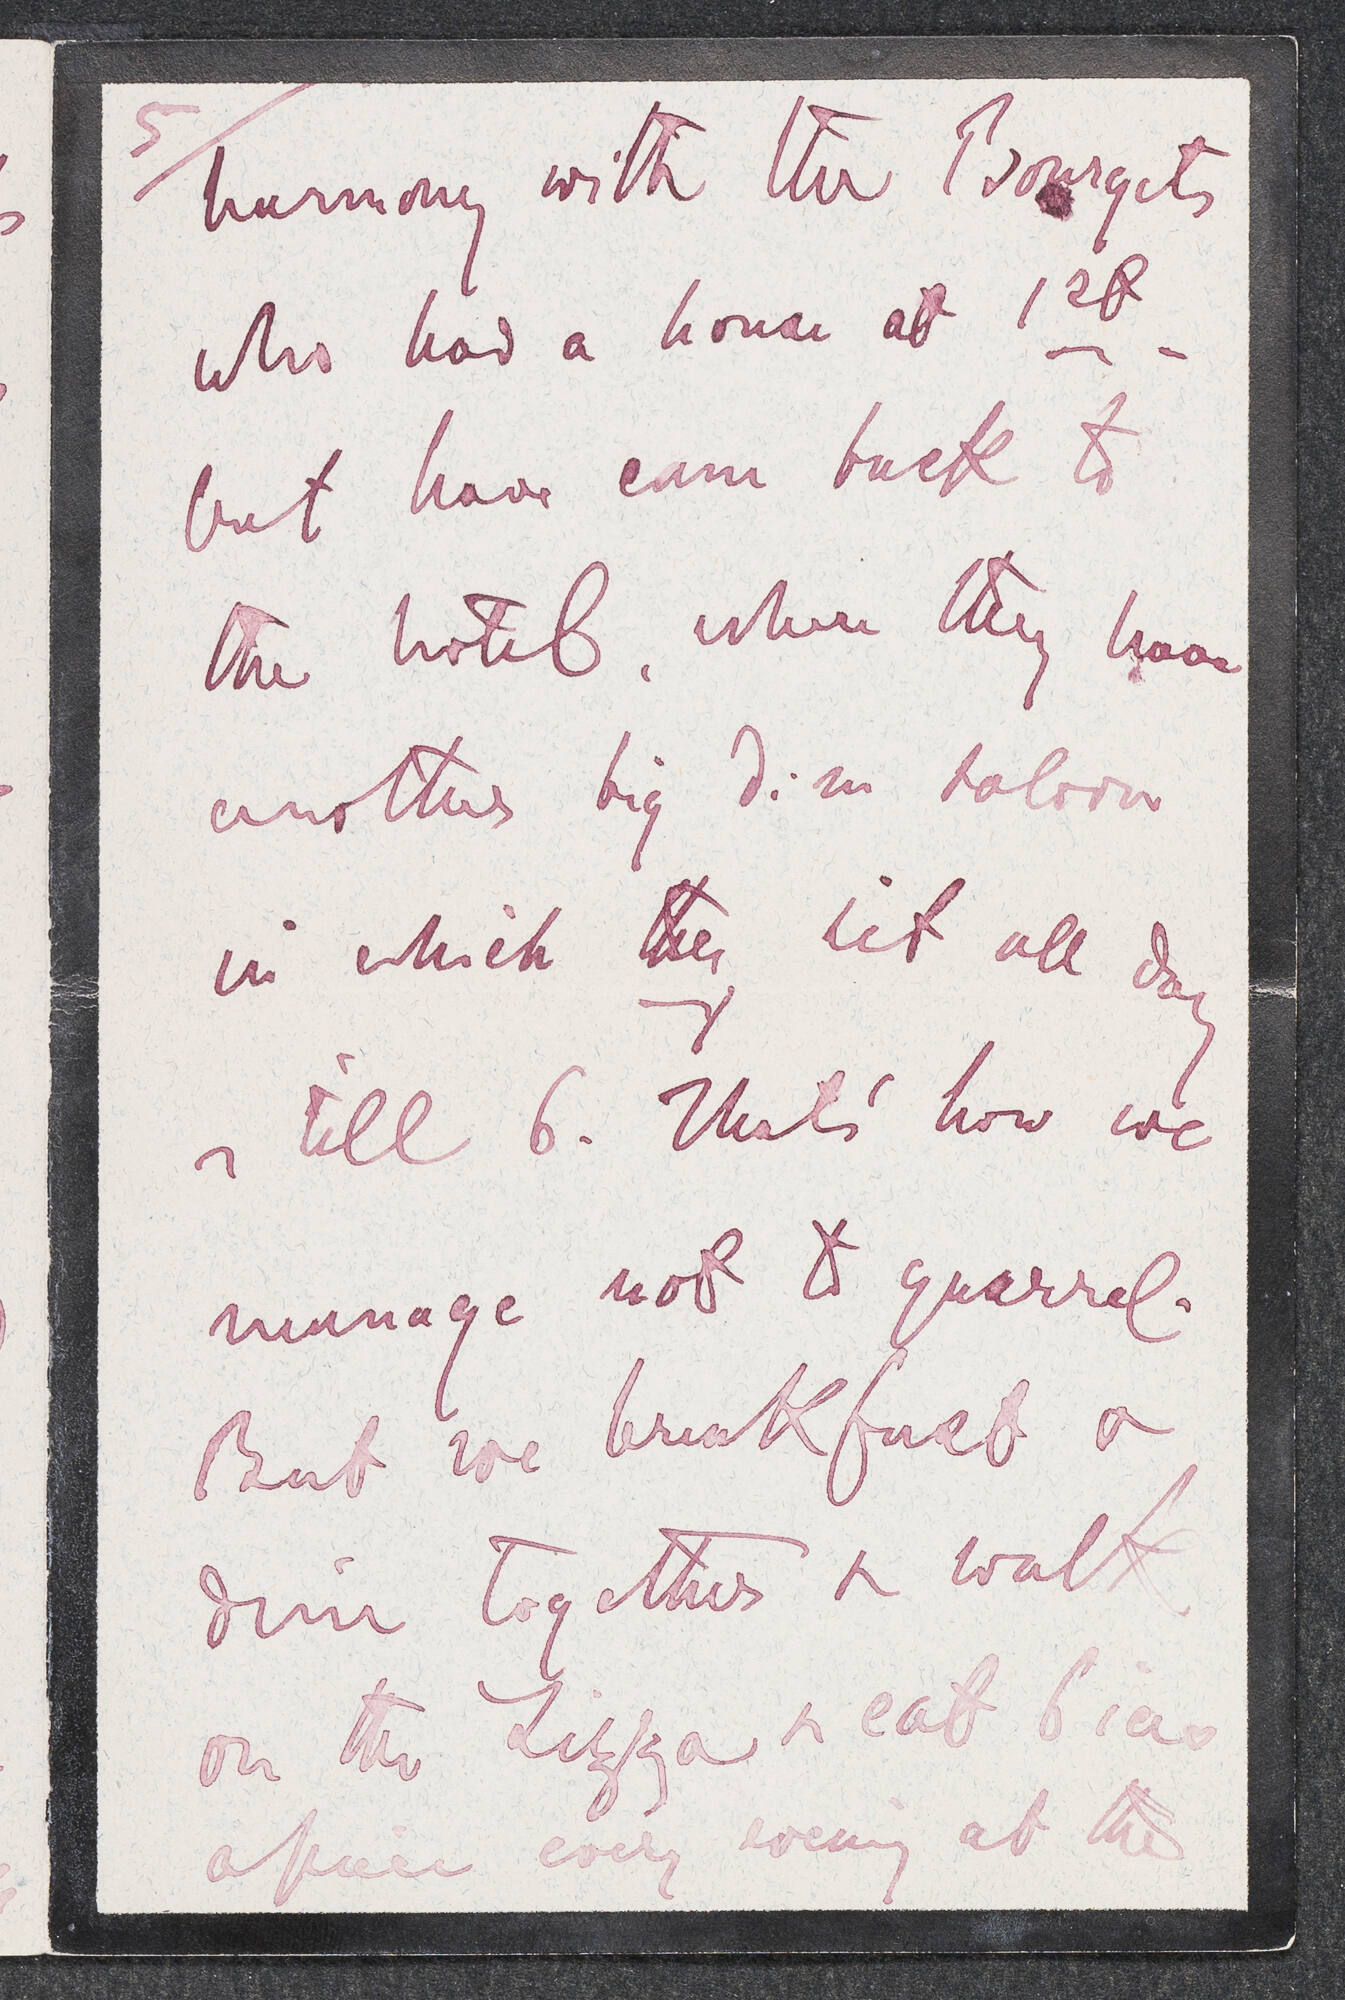 5/
harmony with the Bourgets
who had a house at 1st –
but have come back to
the hotel, where they have
another big dim saloon
in which they sit all day
– till 6. That's how we
manage not to quarrel.
But we breakfast &
dine together & walk
on the Lizza & eat 6 ices
apiece every evening at the